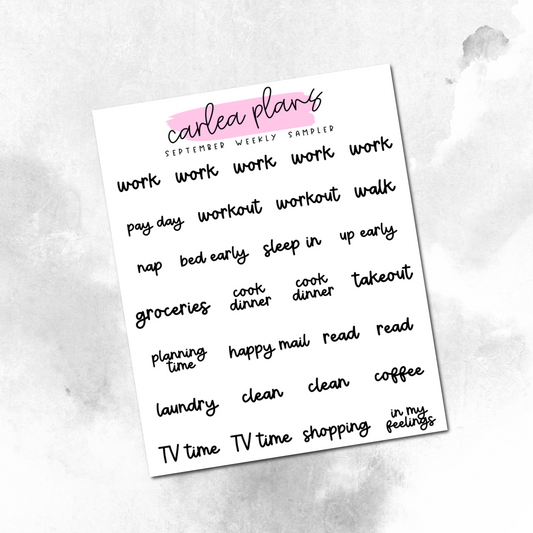 carlea plans
SEPTEMBER WEEKLY SAMPLER
work work work work work
pay day workout workout walk
nap bed early sleep in up early
groceries cook dinner cook dinner takeout
planning time happy mail read read
laundry clean clean coffee
TV time TV time shopping in my feelings